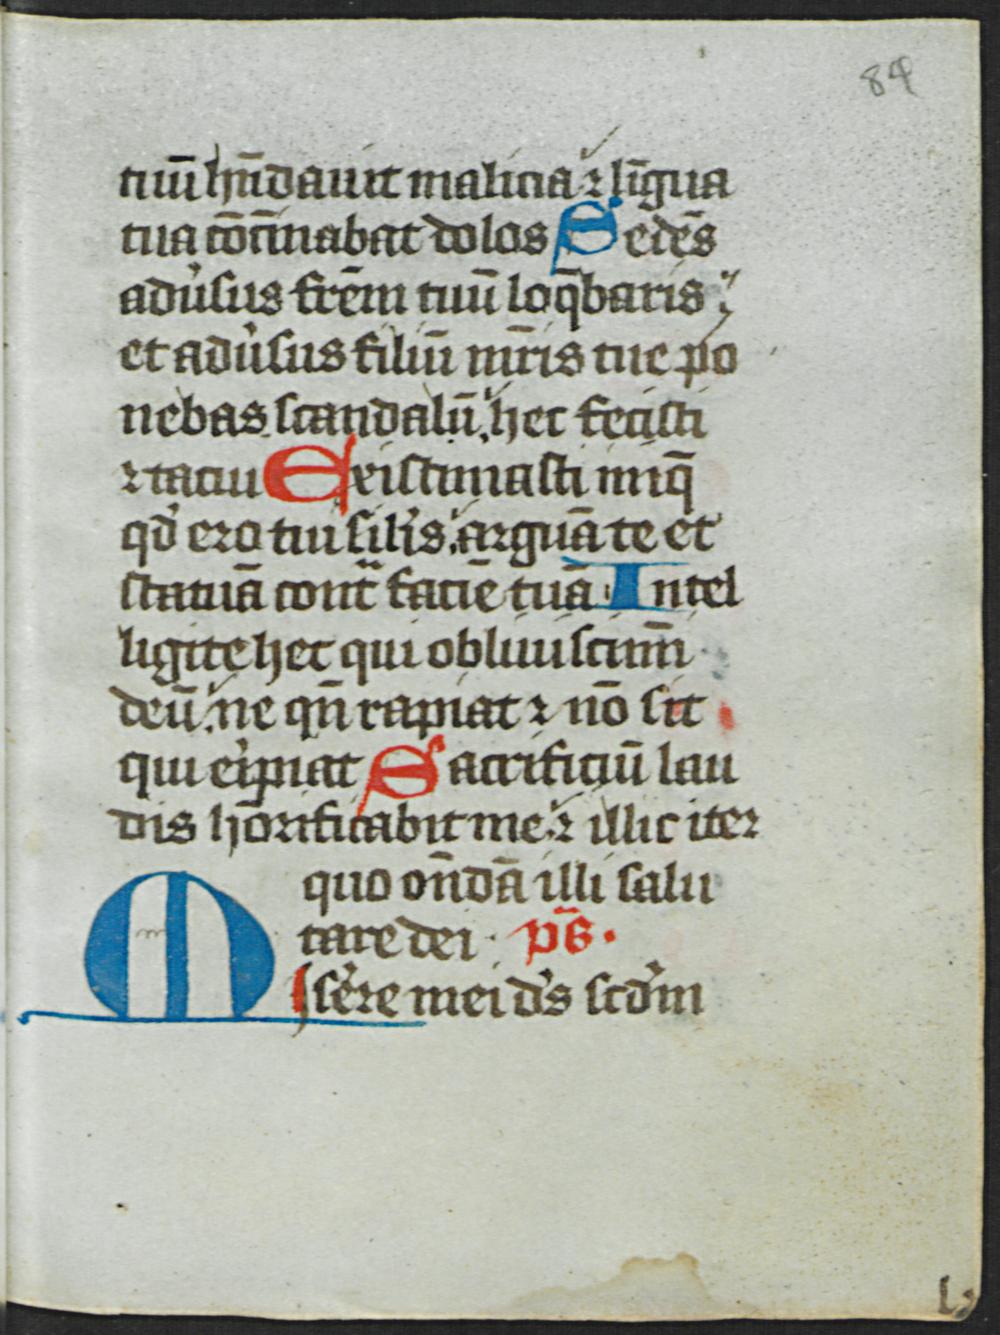 84
tuū hūdauit malicia ⁊ līgua
tua cōcīnabat dolos Sedēs
adu̓sus frēm tuū loq̄baris
et adu̓sus filiū mr̄is tue po
nebas scandalū hec fecisti
⁊ tacui Existimasti iniq̄
qd̓ ero tui sil̓is arguā te et
statuā cont̄ faciē tuā Intel
ligite hec qui obliuiscimī
deū ne qn̄ rapiat ⁊ nō sit
qui eripiat Sacrificiū lau
dis hōrificabit me ⁊ illic iter
quo on̄dā illi salu
tare dei · ps̄ ·
M Isēre mei ds̓ scd̓m